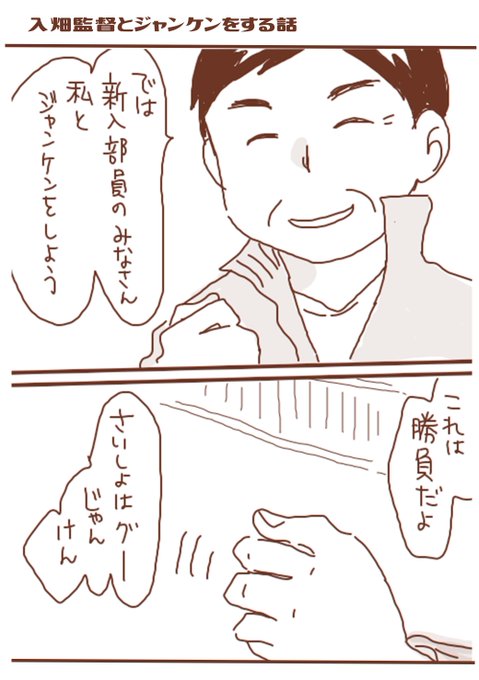 入畑監督とジャンケンをする話
では
新入部員のみなさん
私と
ジャンケンをしよう
これは
勝負だよ
さいしょはグー
じゃん
けん